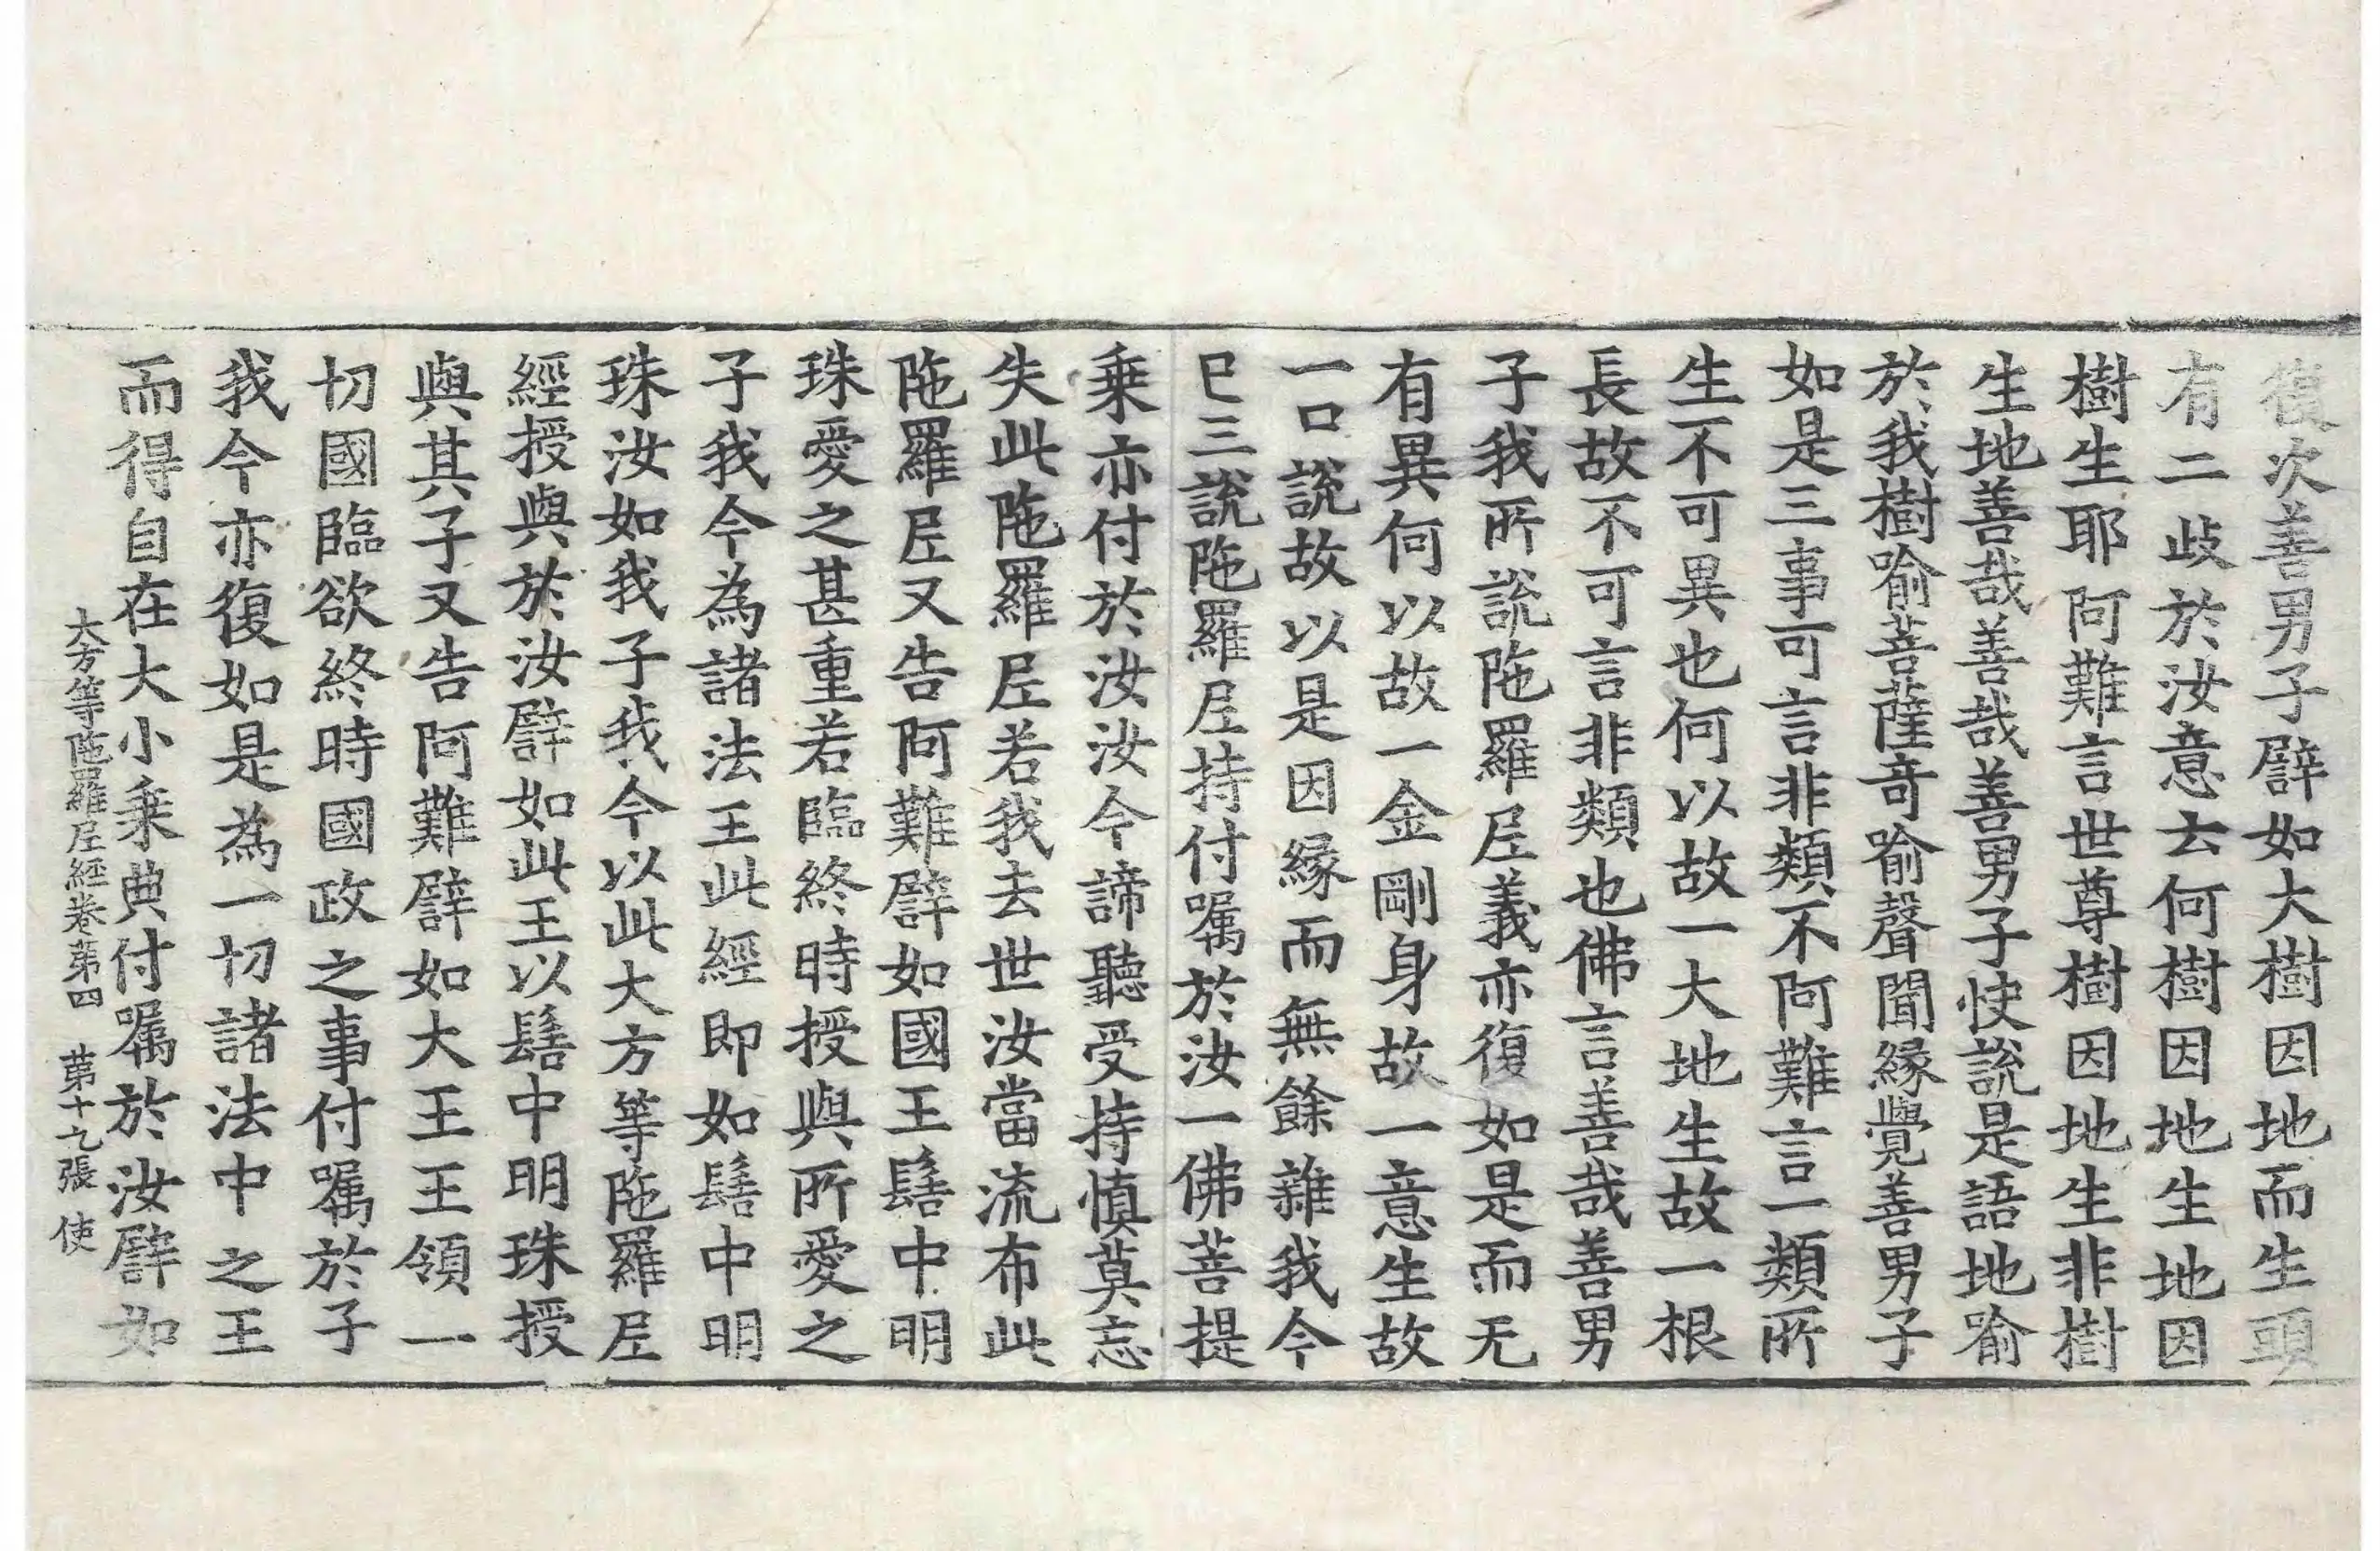 復次善男子譬如大樹因地而生頭
有二歧於汝意云何樹因地生地因
樹生耶阿難言世尊樹因地生非樹
生地善哉善哉善男子快說是語地喻
於我樹喻菩薩奇喻聲聞緣覺善男子
如是三事可言非類不阿難言一類所
生不可異也何以故一大地生故一根
長故不可言非類也佛言善哉善男
子我所說陁羅尼義亦復如是而无
有異何以故一金剛身故一意生故
一口說故以是因緣而無餘雜我今
已三說陁羅尼持付囑於汝一佛菩提
乗亦付於汝汝今諦聽受持慎莫忘
失此陁羅尼若我去世汝當流布此
陁羅尼又告阿難譬如國王髻中明
珠愛之甚重若臨終時授與所愛之
子我今為諸法王此經即如髻中明
珠汝如我子我今以此大方等陁羅尼
經授與於汝譬如此王以髻中明珠授
與其子又告阿難譬如大王王領一
切國臨欲終時國政之事付囑於子
我今亦復如是為一切諸法中之王
而得自在大小乗典付囑於汝譬如
大方等陁羅尼經卷第四　第十九張　使